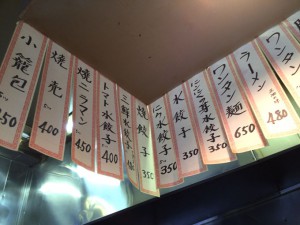 小籠包 450
焼売 400
焼ニラマン 450
トマト水餃子 400
三鮮水餃子
焼餃子 350
水餃子 350
ニンニク芽水餃子 350
ワンタン麺 650
ラーメン
ワンタン 480